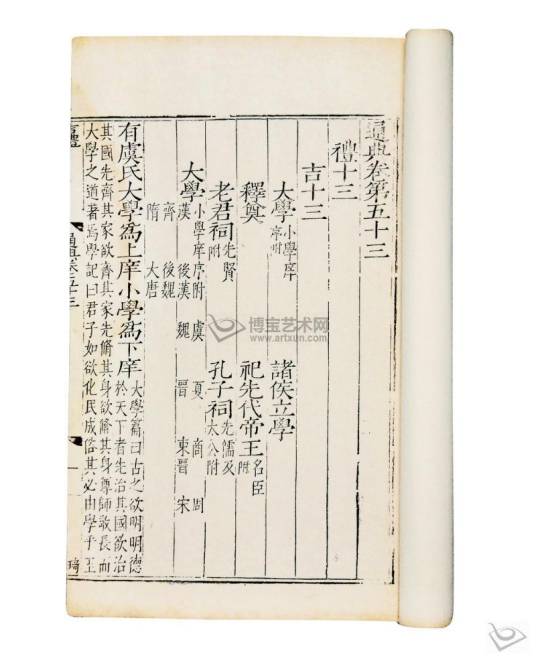 通典卷第五十三
禮十三
吉十三
大學 小學庠序附 諸侯立學
釋奠 祀先代帝王 名臣附
老君祠 先賢附 孔子祠 先儒及太公附
大學 小學庠序附 虞 夏 商 周
漢 後漢 魏 晉 東晉 宋
齊 後魏
隋 大唐
有虞氏大學爲上庠小學爲下庠 大學篇曰古之欲明明德
於天下者先治其國欲治
其國先齊其家欲齊其家先脩其身欲脩其身尊師敬長而
大學之道者焉學記曰君子如欲化民成俗其必由學乎王
博宝艺术网
www.artxun.com